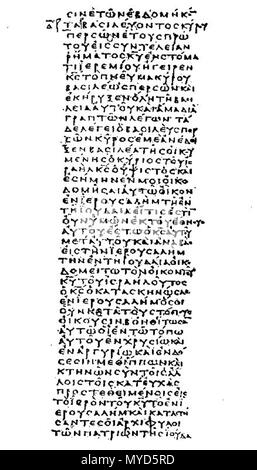 ϹΙΝΕΤΩΝΕΒΔΟΜΗΚ
ΤΑΒΑϹΙΛΕΥΟΝΤΟϹΚΥΡΟΥ
ΠΕΡϹΩΝΕΤΟΥϹΠΡΩ
ΤΟΥΕΙϹϹΥΝΤΕΛΕΙΑΝ
ΡΗΜΑΤΟϹΚΥΕΝϹΤΟΜΑ
ΤΙΙΕΡΕΜΙΟΥΗΓΕΙΡΕΝ
ΚϹΤΟΠΝΕΥΜΑΚΥΡΟΥ
ΒΑϹΙΛΕΩϹΠΕΡϹΩΝΚΑΙ
ΕΚΗΡΥΞΕΝΟΛΗΤΗΒΑϹΙ
ΛΕΙΑΑΥΤΟΥΚΑΙΑΜΑΔΙΑ
ΓΡΑΠΤΩΝΛΕΓΩΝΤΑ
ΔΕΛΕΓΕΙΟΒΑϹΙΛΕΥϹΠΕΡ
ϹΩΝΚΥΡΟϹΕΜΕΑΝΕΔΕΙ
ΞΕΝΒΑϹΙΛΕΑΤΗϹΟΙΚΟΥ
ΜΕΝΗϹΟΚΥΡΙΟϹΤΟΥΙϹ
ΡΑΗΛΚϹΟΥΨΙϹΤΟϹΚΑΙ
ΕϹΗΜΗΝΕΝΜΟΙΟΙΚΟ
ΔΟΜΗϹΑΙΑΥΤΩΟΙΚΟΝ
ΕΝΙΕΡΟΥϹΑΛΗΜΤΗΕΝ
ΤΗΙΟΥΔΑΙΑΕΙΤΙϹΕϹΤΙ
ΟΥΝΥΜΩΝΕΚΤΟΥΕΘΝΟΥϹ
ΑΥΤΟΥΕϹΤΩΟΚϹΑΥΤΟΥ
ΜΕΤΑΥΤΟΥΚΑΙΑΝΑΒΑϹ
ΕΙϹΤΗΝΙΕΡΟΥϹΑΛΗΜ
ΤΗΝΕΝΤΗΙΟΥΔΑΙΑΟΙΚΟ
ΔΟΜΕΙΤΩΤΟΝΟΙΚΟΝΤΟΥ
ΚΥΤΟΥΙϹΡΑΗΛΟΥΤΟϹ
ΟΚϹΟΚΑΤΑϹΚΗΝΩϹΑϹ
ΕΝΙΕΡΟΥϹΑΛΗΜΟϹΟΙ
ΟΥΝΚΑΤΑΤΟΥϹΤΟΠΟΥϹ
ΟΙΚΟΥϹΙΝΒΟΗΘΙΤΩϹΑ
ΑΥΤΩΟΙΕΝΤΩΤΟΠΩ
ΑΥΤΟΥΕΝΧΡΥϹΙΩΚΑΙ
ΕΝΑΡΓΥΡΙΩΚΑΙΕΝΔΟ
ϹΕϹΙΜΕΘΙΠΠΩΝΚΑΙ
ΚΤΗΝΩΝϹΥΝΤΟΙϹΑΛ
ΛΟΙϹΤΟΙϹΚΑΤΕΥΧΑϹ
ΠΡΟϹΤΕΘΕΙΜΕΝΟΙϹΕΙϹ
ΤΟΙΕΡΟΝΤΟΥΚΥΤΟΕΝΙ
ΕΡΟΥϹΑΛΗΜΚΑΙΚΑΤΑϹΤΑ
ΑΝΤΕϹΟΙΑΡΧΙΦΥΛΟΙ
ΤΩΝΠΑΤΡΙΩΝΤΗϹΙΟΥΔΑ